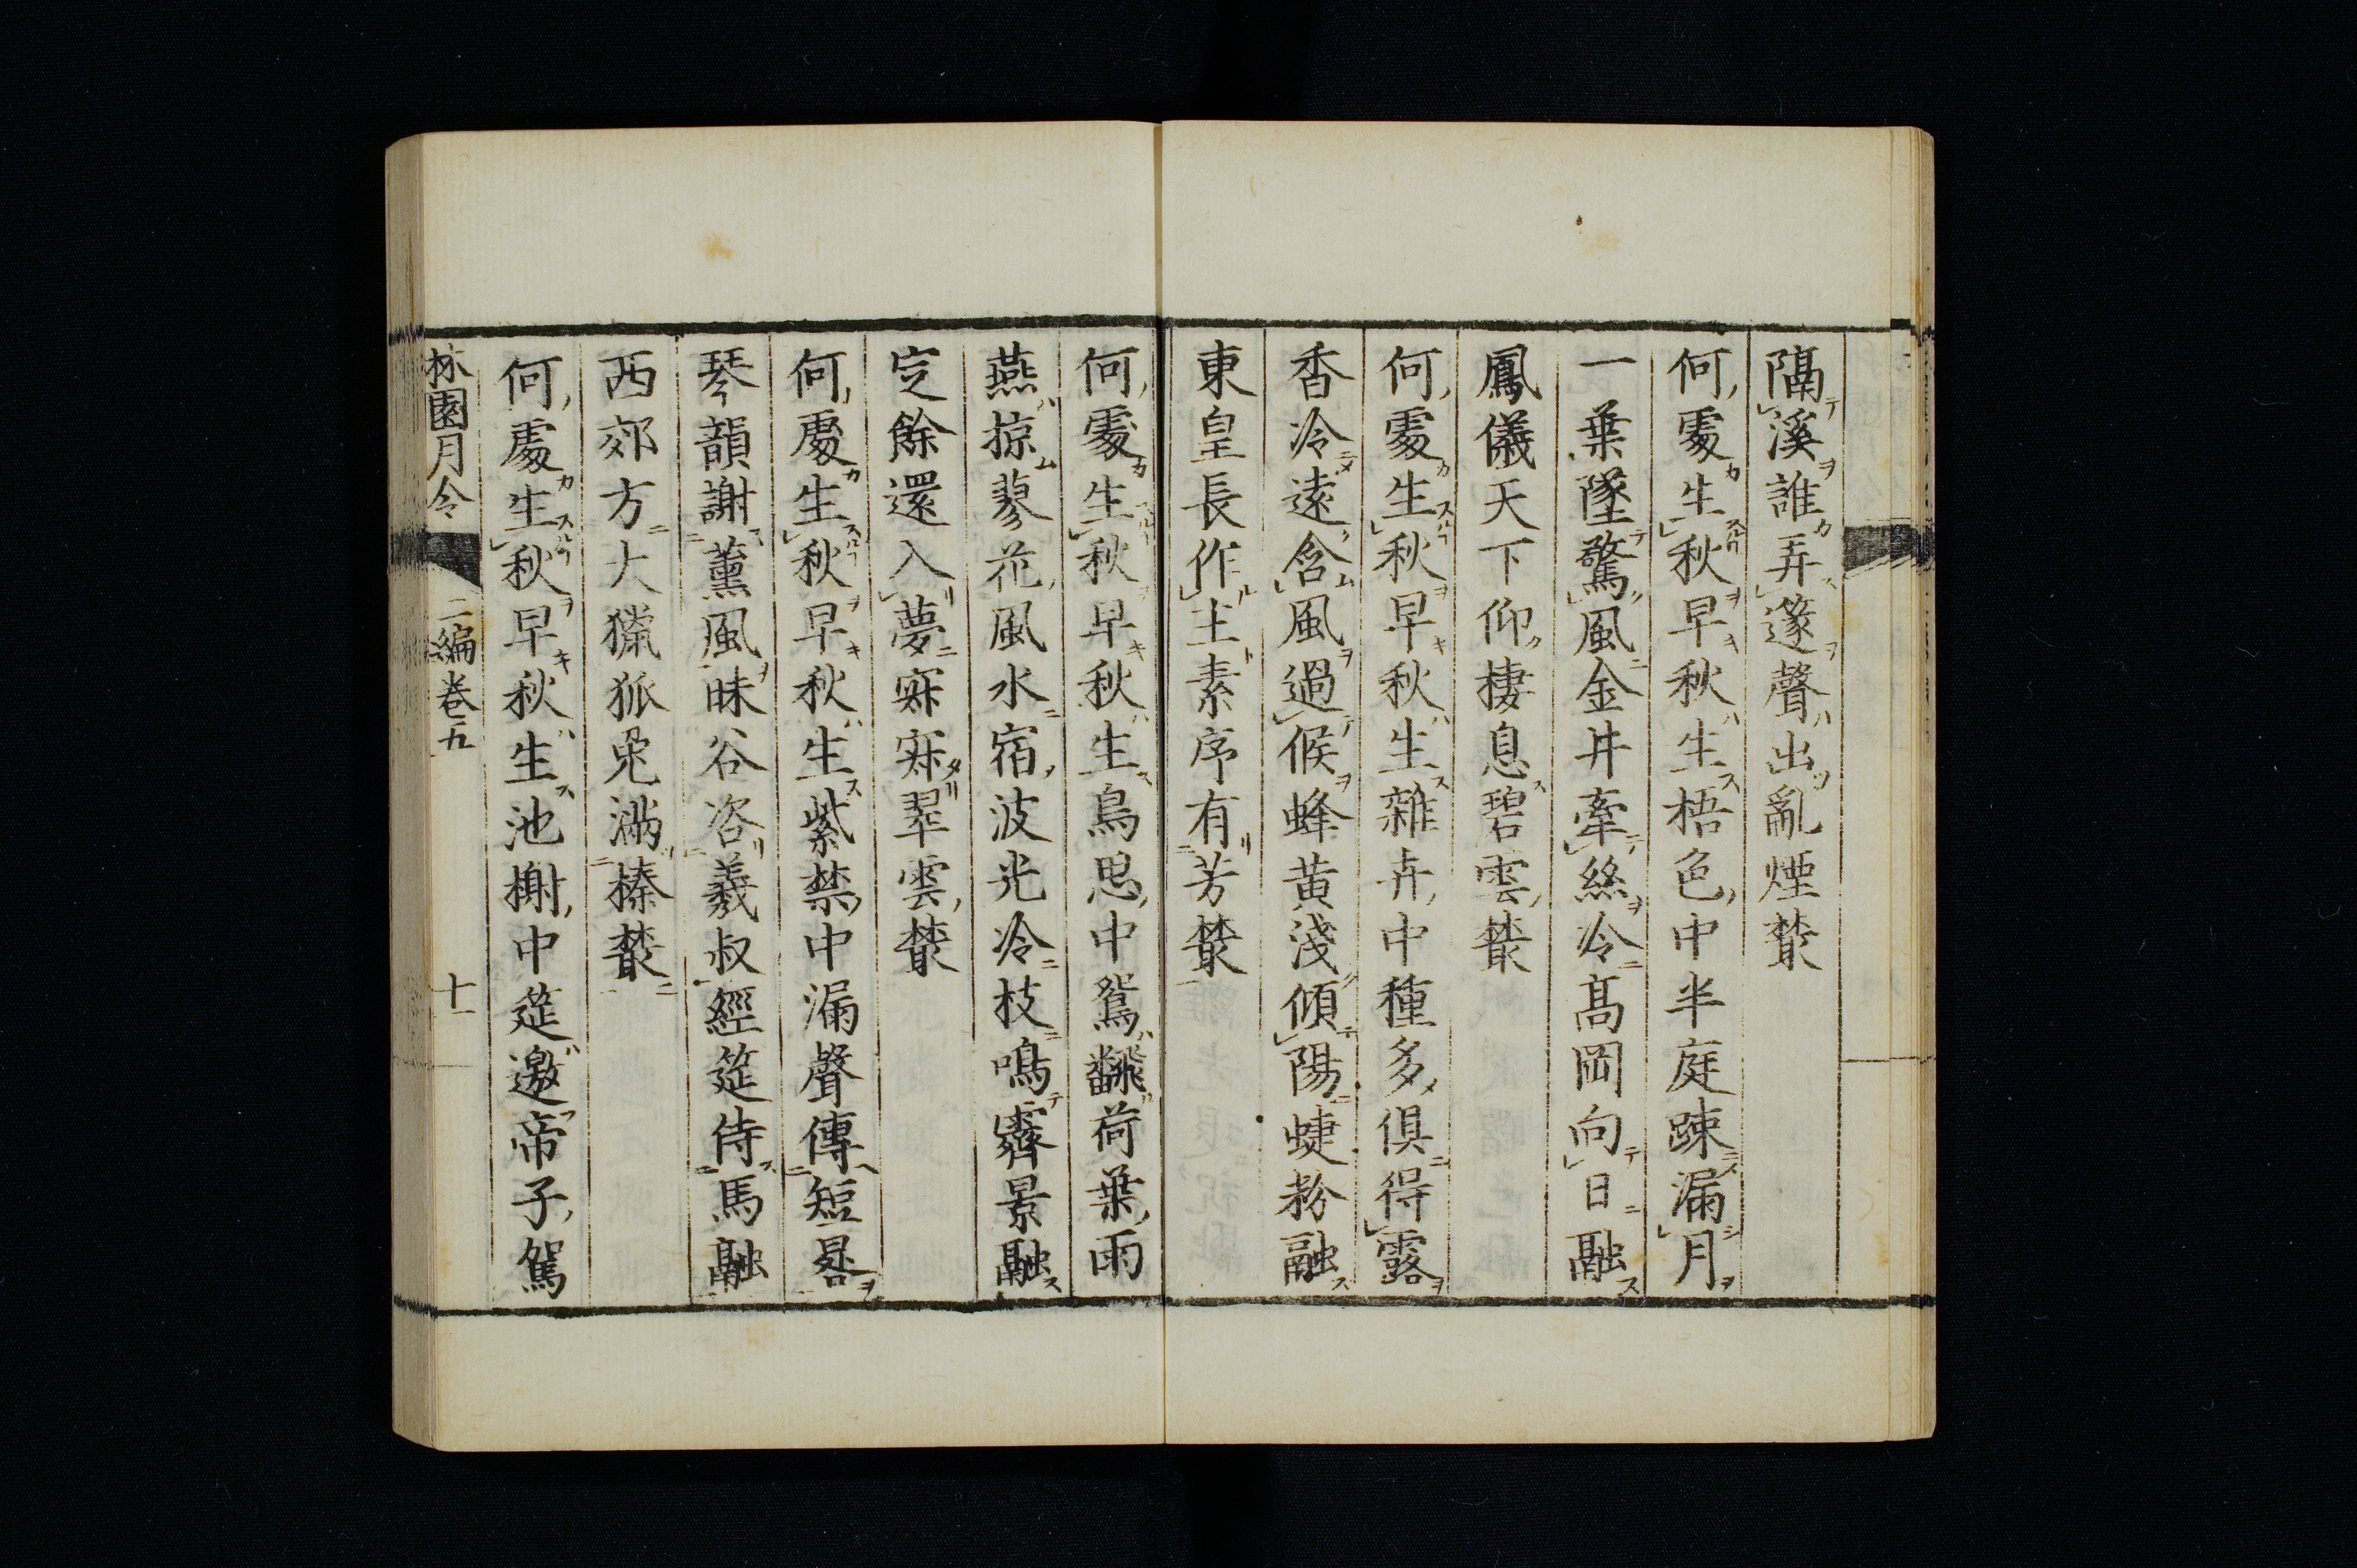 隔溪誰弄篴聲出亂煙藂
何處生秋早秋生梧色中半庭踈漏月
一葉墜驚風金井牽絲冷髙岡向日融
鳳儀天下仰棲息碧雲藂
何處生秋早秋生雜卉中種多俱得露
香冷遠含風過候蜂黄淺傾陽蜨粉融
東皇長作主素序有芳藂
何處生秋早秋生鳥思中鴛飜荷葉雨
燕掠蓼花風水宿波光冷枝鳴霽景融
定餘還入夢寐寐翠雲藂
何處生秋早秋生紫禁中漏聲傳短晷
琴韻謝薰風昧谷咨羲叔經筵侍馬融
西郊方大獵狐兎滿榛藂
何處生秋早秋生池榭中筵邀帝子駕
林園月令 二編卷五 十